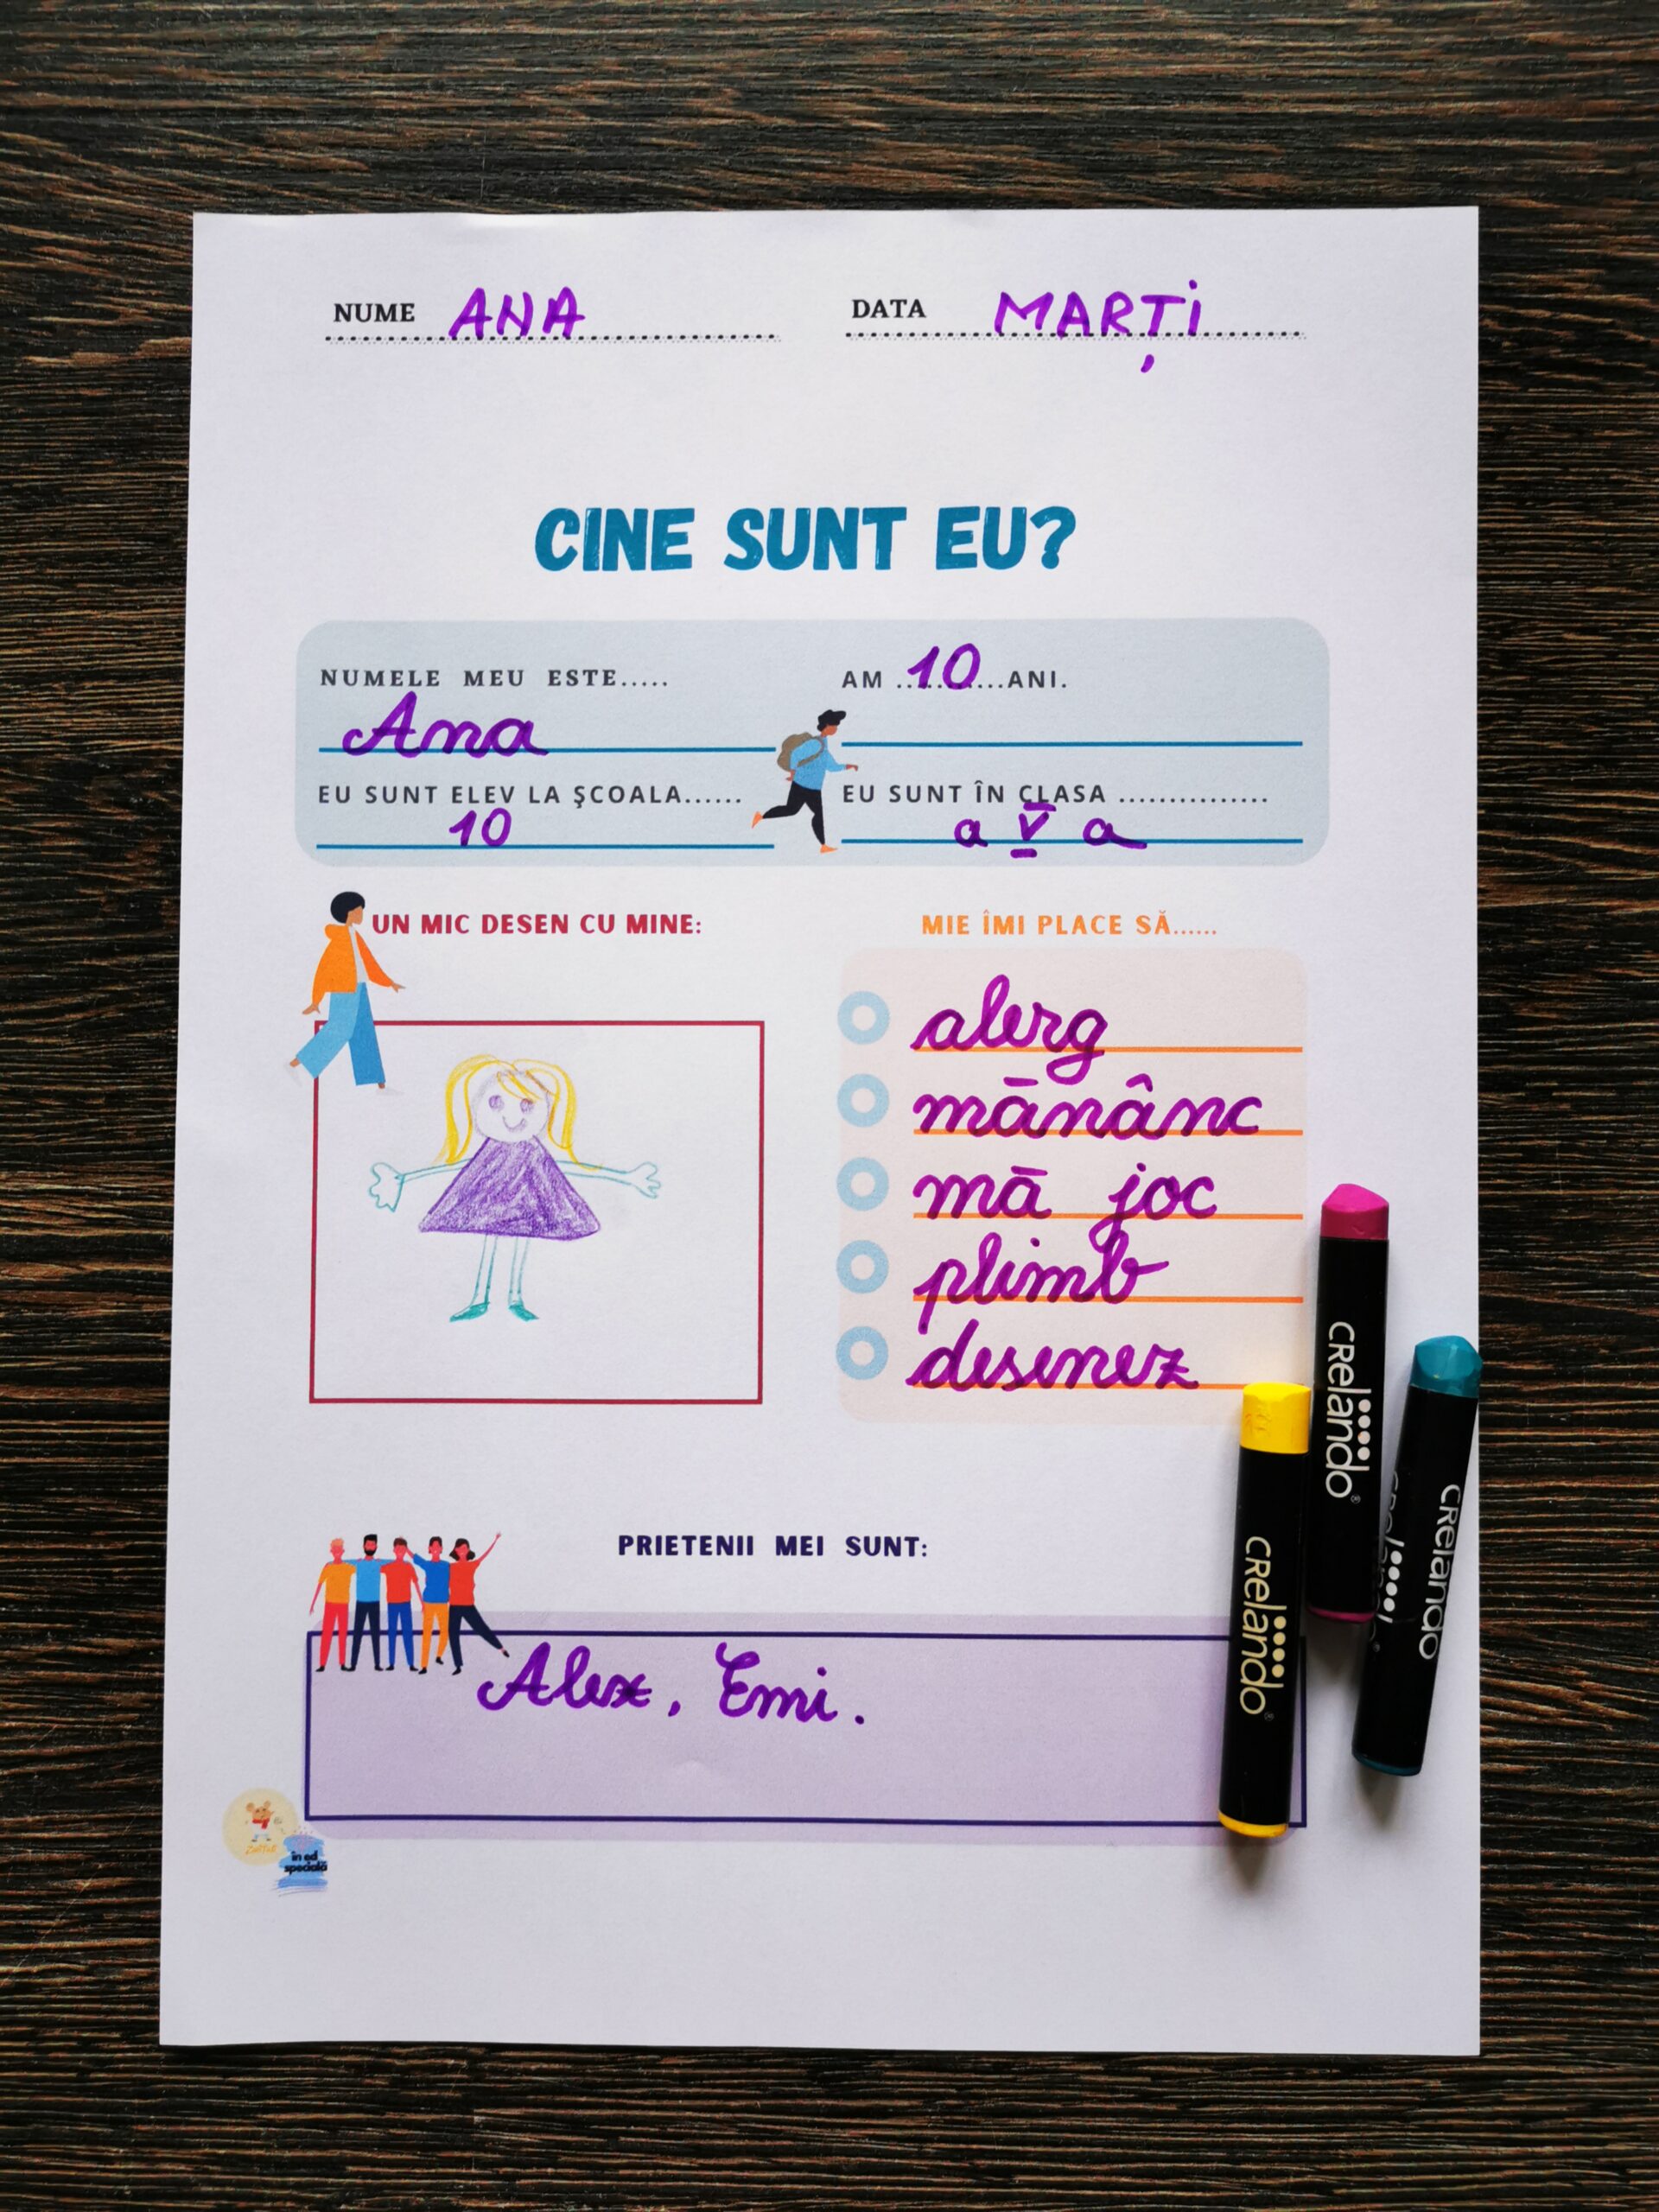 NUME ANA DATA MARȚI
CINE SUNT EU?
NUMELE MEU ESTE.....
Ana
AM ..10...ANI.
EU SUNT ELEV LA ŞCOALA......
10
EU SUNT ÎN CLASA ...............
a V a
UN MIC DESEN CU MINE:
MIE ÎMI PLACE SĂ......
alerg
mănânc
mă joc
plimb
desenez
PRIETENII MEI SUNT:
Alex, Emi.
în ed
specială
crelando®
crelando®
crelando